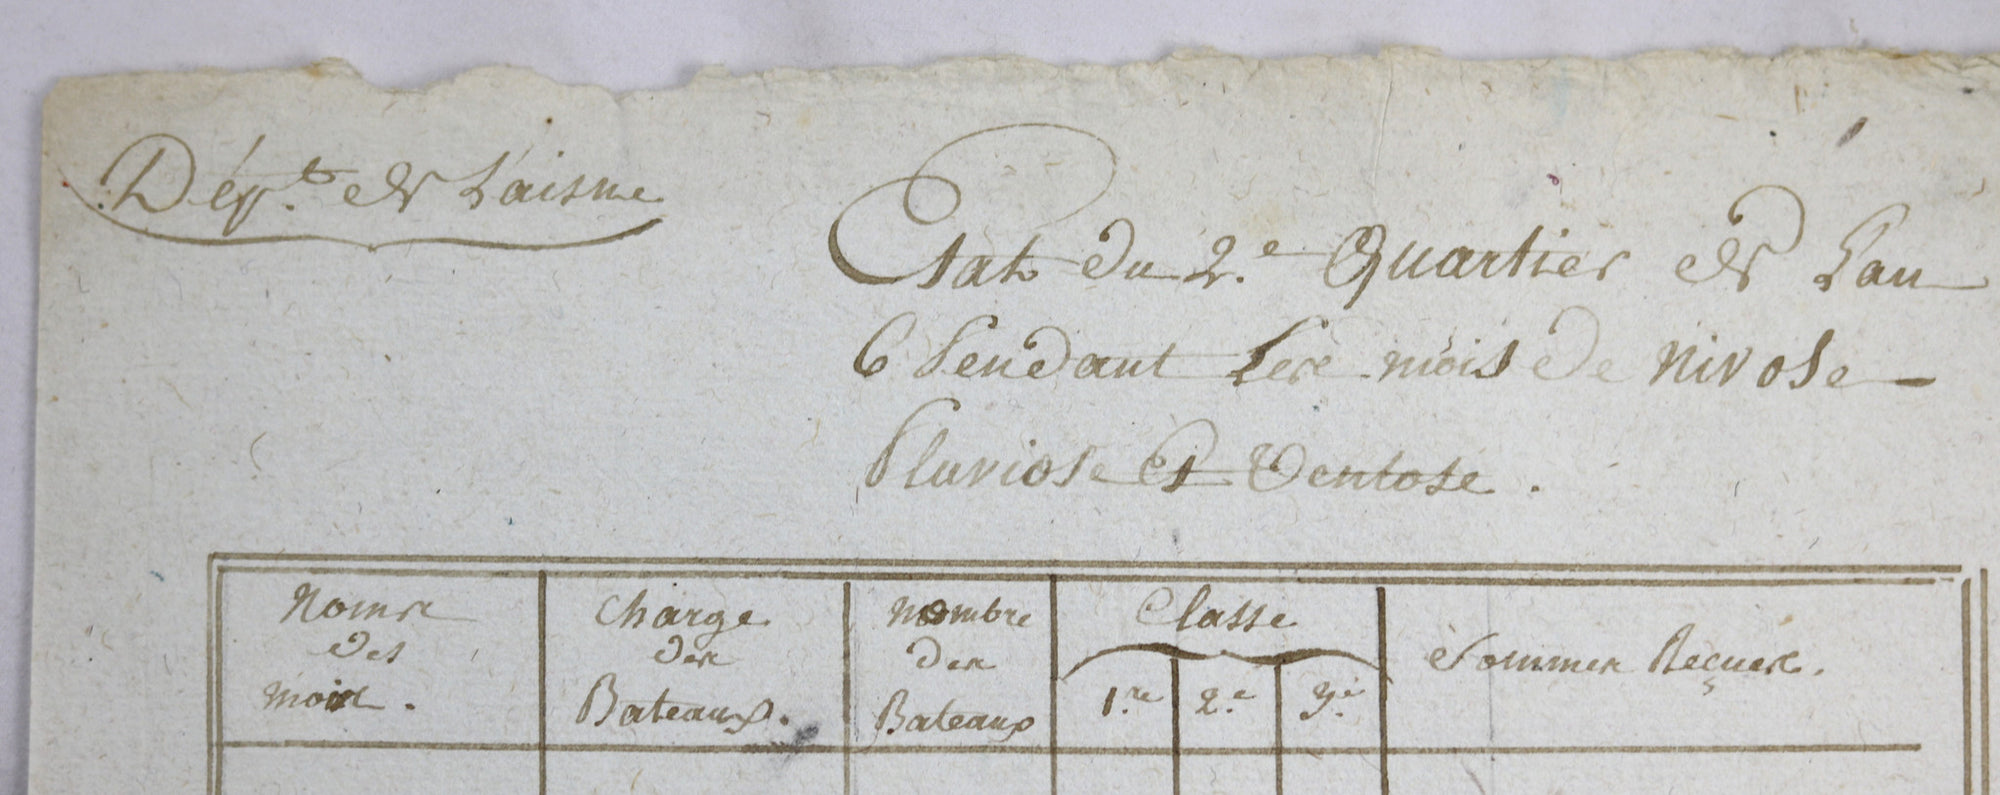 Dép.t de Laisne
Etat du 2.e Quartier de Lan
6 Pendant Les mois de Nivose
Pluviose Et Ventose.
Noms
des
mois.
Charge
des
Bateaux.
Nombre
des
Bateaux
Classe
1.re 2.e 3.e
Sommes Reçues.